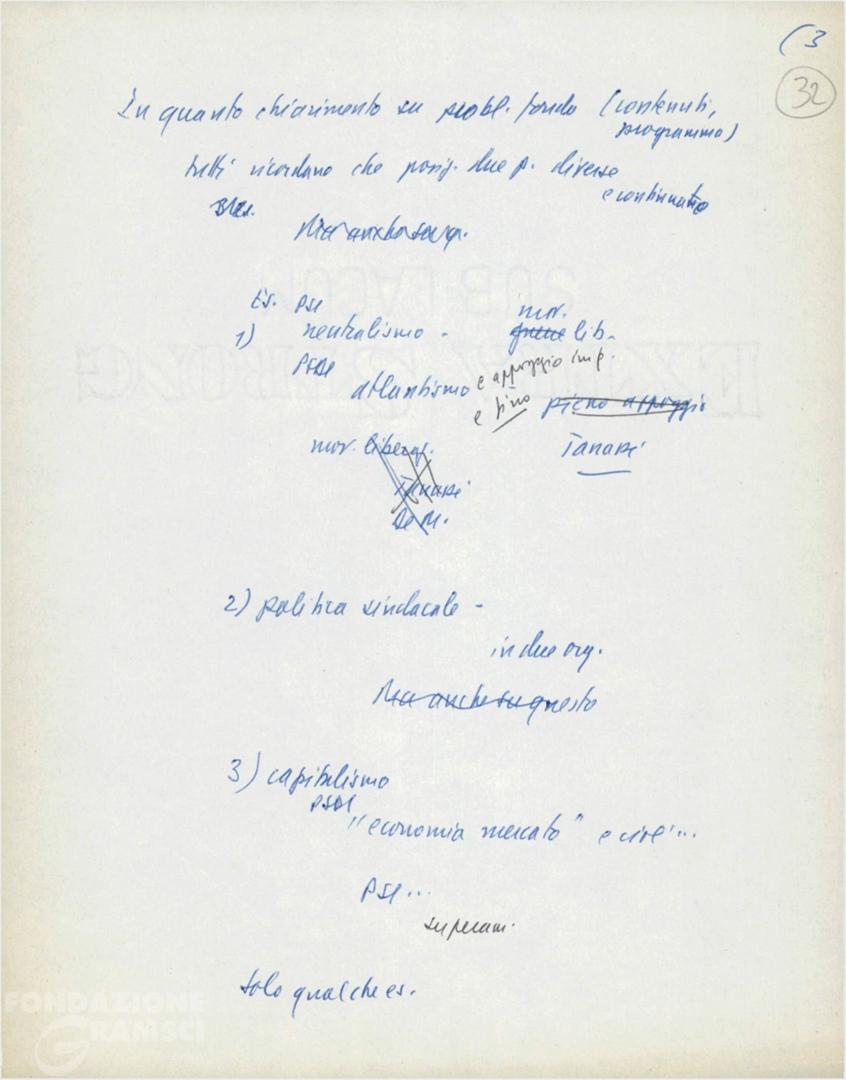 (3
32
In quanto chiarimento su probl. fondo (contenuti,
programma)
tutti ricordano che posiz. due p. diverse
e continuano
Ma anche su q.
Es. PSI
1) neutralismo - mov.
lib.
PSDI
atlantismo e appoggio imp.
e fino pieno appoggio
mov. liberaz. Tanassi
Tanassi
De M.
2) politica sindacale -
in due org.
Ma anche su questo
3) capitalismo
PSDI
"economia mercato" e cioè...
PSI...
superam.
solo qualche es.
FONDAZIONE
GRAMSCI